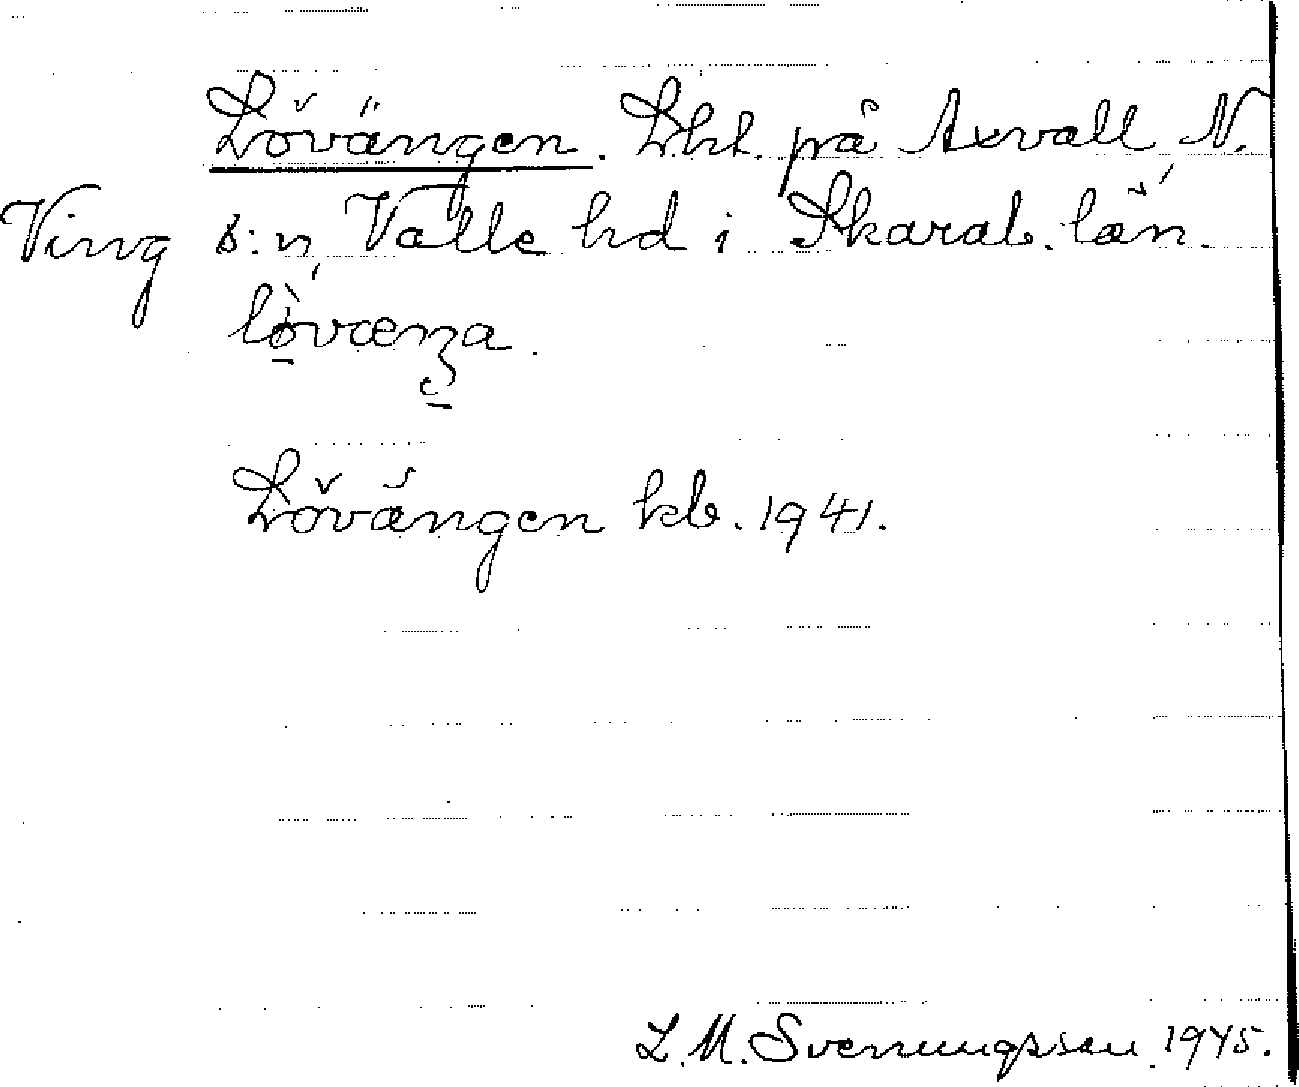 Lövängen. Lht. på Axvall N.
Ving s:n Valle hd i Skarab. län.
Lövängen kb. 1941.
L. M. Svenungsson 1945.